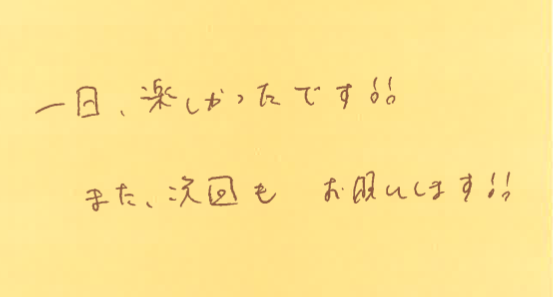 一日、楽しかったです!!
また、次回も お願いします!!